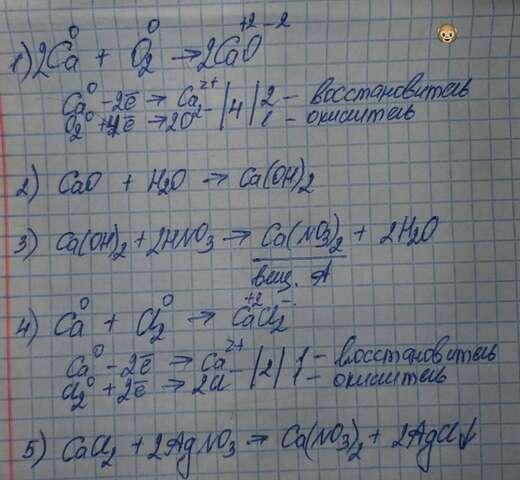 1) 2Ca⁰ + O₂⁰ → 2Ca⁺²O⁻²
Ca⁰ - 2ē → Ca²⁺ | 4 | 2 - восстановитель
O₂⁰ + 4ē → 2O²⁻ | 1 - окислитель
2) CaO + H₂O → Ca(OH)₂
3) Ca(OH)₂ + 2HNO₃ → Ca(NO₃)₂ + 2H₂O
вещ. А
4) Ca⁰ + Cl₂⁰ → Ca⁺²Cl₂⁻
Ca⁰ - 2ē → Ca²⁺ | 2 | 1 - восстановитель
Cl₂⁰ + 2ē → 2Cl⁻ | 1 - окислитель
5) CaCl₂ + 2AgNO₃ → Ca(NO₃)₂ + 2AgCl↓